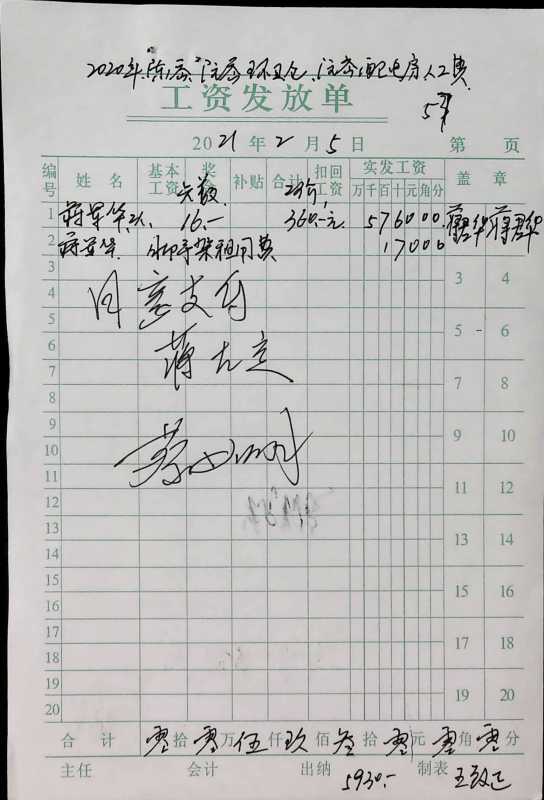 2020年陈寨、沅寨环卫仓、沅寨配电房人工费
工资发放单
2021年2月5日 第 页
编号 姓名 基本工资 奖 天数 补贴 合计 单价 扣回工资 实发工资 万千百十元角分 盖章
1 蒋军华 16.- 360.-元 576000 蒋军华 蒋军华
2 蒋军华 脚手架租用费 17000
3 3 4
4 同意支付
5 5 6
6 蒋
7 7 8
8
9 9 10
10
11 11 12
12
13 13 14
14
15 15 16
16
17 17 18
18
19 19 20
20
合计 零拾零万伍仟玖佰叁拾零元零角零分
主任 会计 出纳 5930.- 制表